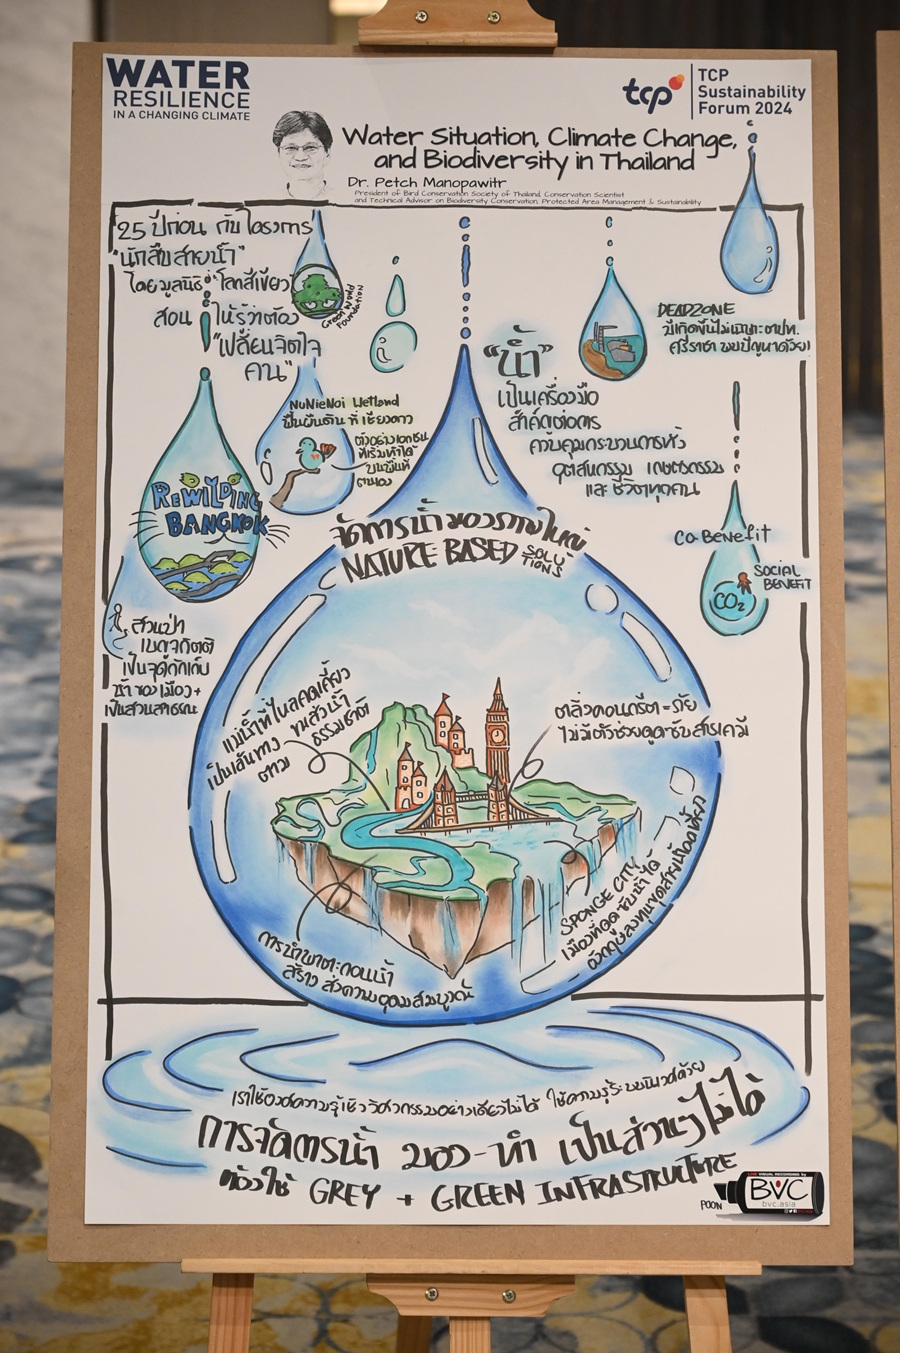 WATER
RESILIENCE
IN A CHANGING CLIMATE
tcp
TCP
Sustainability
Forum 2024
Water Situation, Climate Change,
and Biodiversity in Thailand
Dr. Petch Manopawitr
President of Bird Conservation Society of Thailand, Conservation Scientist
and Technical Advisor on Biodiversity Conservation, Protected Area Management & Sustainability
25 ปีก่อน กับโครงการ
"นักสืบสายน้ำ"
โดยมูลนิธิ "โลกสีเขียว"
Green World
Foundation
สอน ให้รู้ว่าต้อง
"เปลี่ยนจิตใจ
คน"
NuNieNoi Wetland
ฟื้นผืนดิน ที่ เชียงดาว
ตัวอย่างเอกชน
ที่เริ่มทำได้
บนพื้นที่
ตนเอง
REWILDING
BANGKOK
สวนป่า
เบญจกิตติ
เป็นจุดกักเก็บ
น้ำของเมือง +
เป็นสวนสาธารณะ
"น้ำ"
เป็นเครื่องมือ
สำคัญต่อการ
ควบคุมกระบวนการทั้ง
อุตสหกรรม เกษตรกรรม
และ ชีวิตทุกคน
DEADZONE
ศรีราชา พบปัญหาด้วย
Co-Benefit
SOCIAL
BENEFIT
CO2
จัดการน้ำ มองภาพใหญ่
NATURE BASED SOLUTIONS
แม่น้ำที่ไหลคดเคี้ยว
เป็นเส้นทาง ขนส่งน้ำ
ตาม ธรรมชาติ
ตลิ่งคอนกรีต = ภัย
ไม่มีตัวช่วยดูดซับสารเคมี
SPONGE CITY
เมืองที่ดูดซับน้ำได้
การนำพาตะกอนน้ำ
สร้าง ส่งความอุดมสมบูรณ์
เราใช้องค์ความรู้เชิงวิศวกรรมอย่างเดียวไม่ได้ ใช้ความรู้ระบบนิเวศด้วย
การจัดการน้ำ มอง-ทำ เป็นส่วนๆไม่ได้
ต้องใช้ GREY + GREEN INFRASTRUCTURE
POON
LIVE VISUAL RECORDING by
BVC
bvc.asia